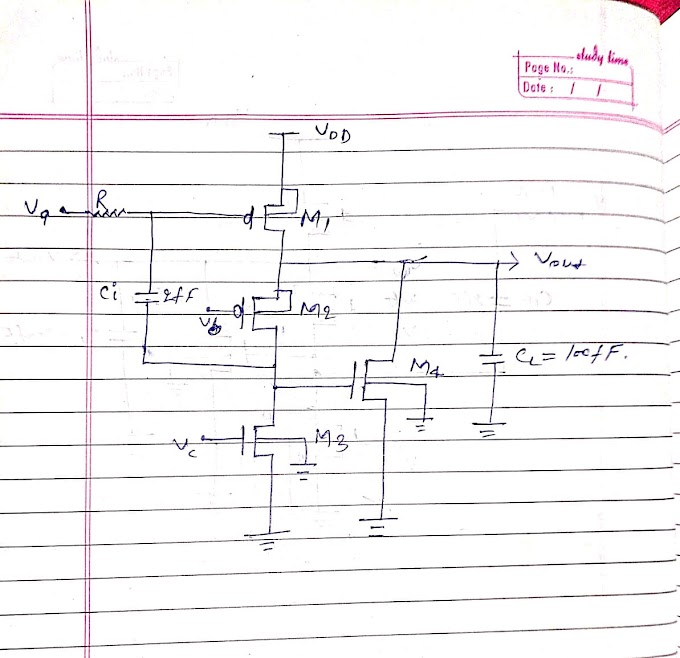 study time
Page No.:
Date : / /
VDD
Va
R
M1
Vout
Ci
2fF
Vb
M2
M4
CL = 100fF.
Vc
M3